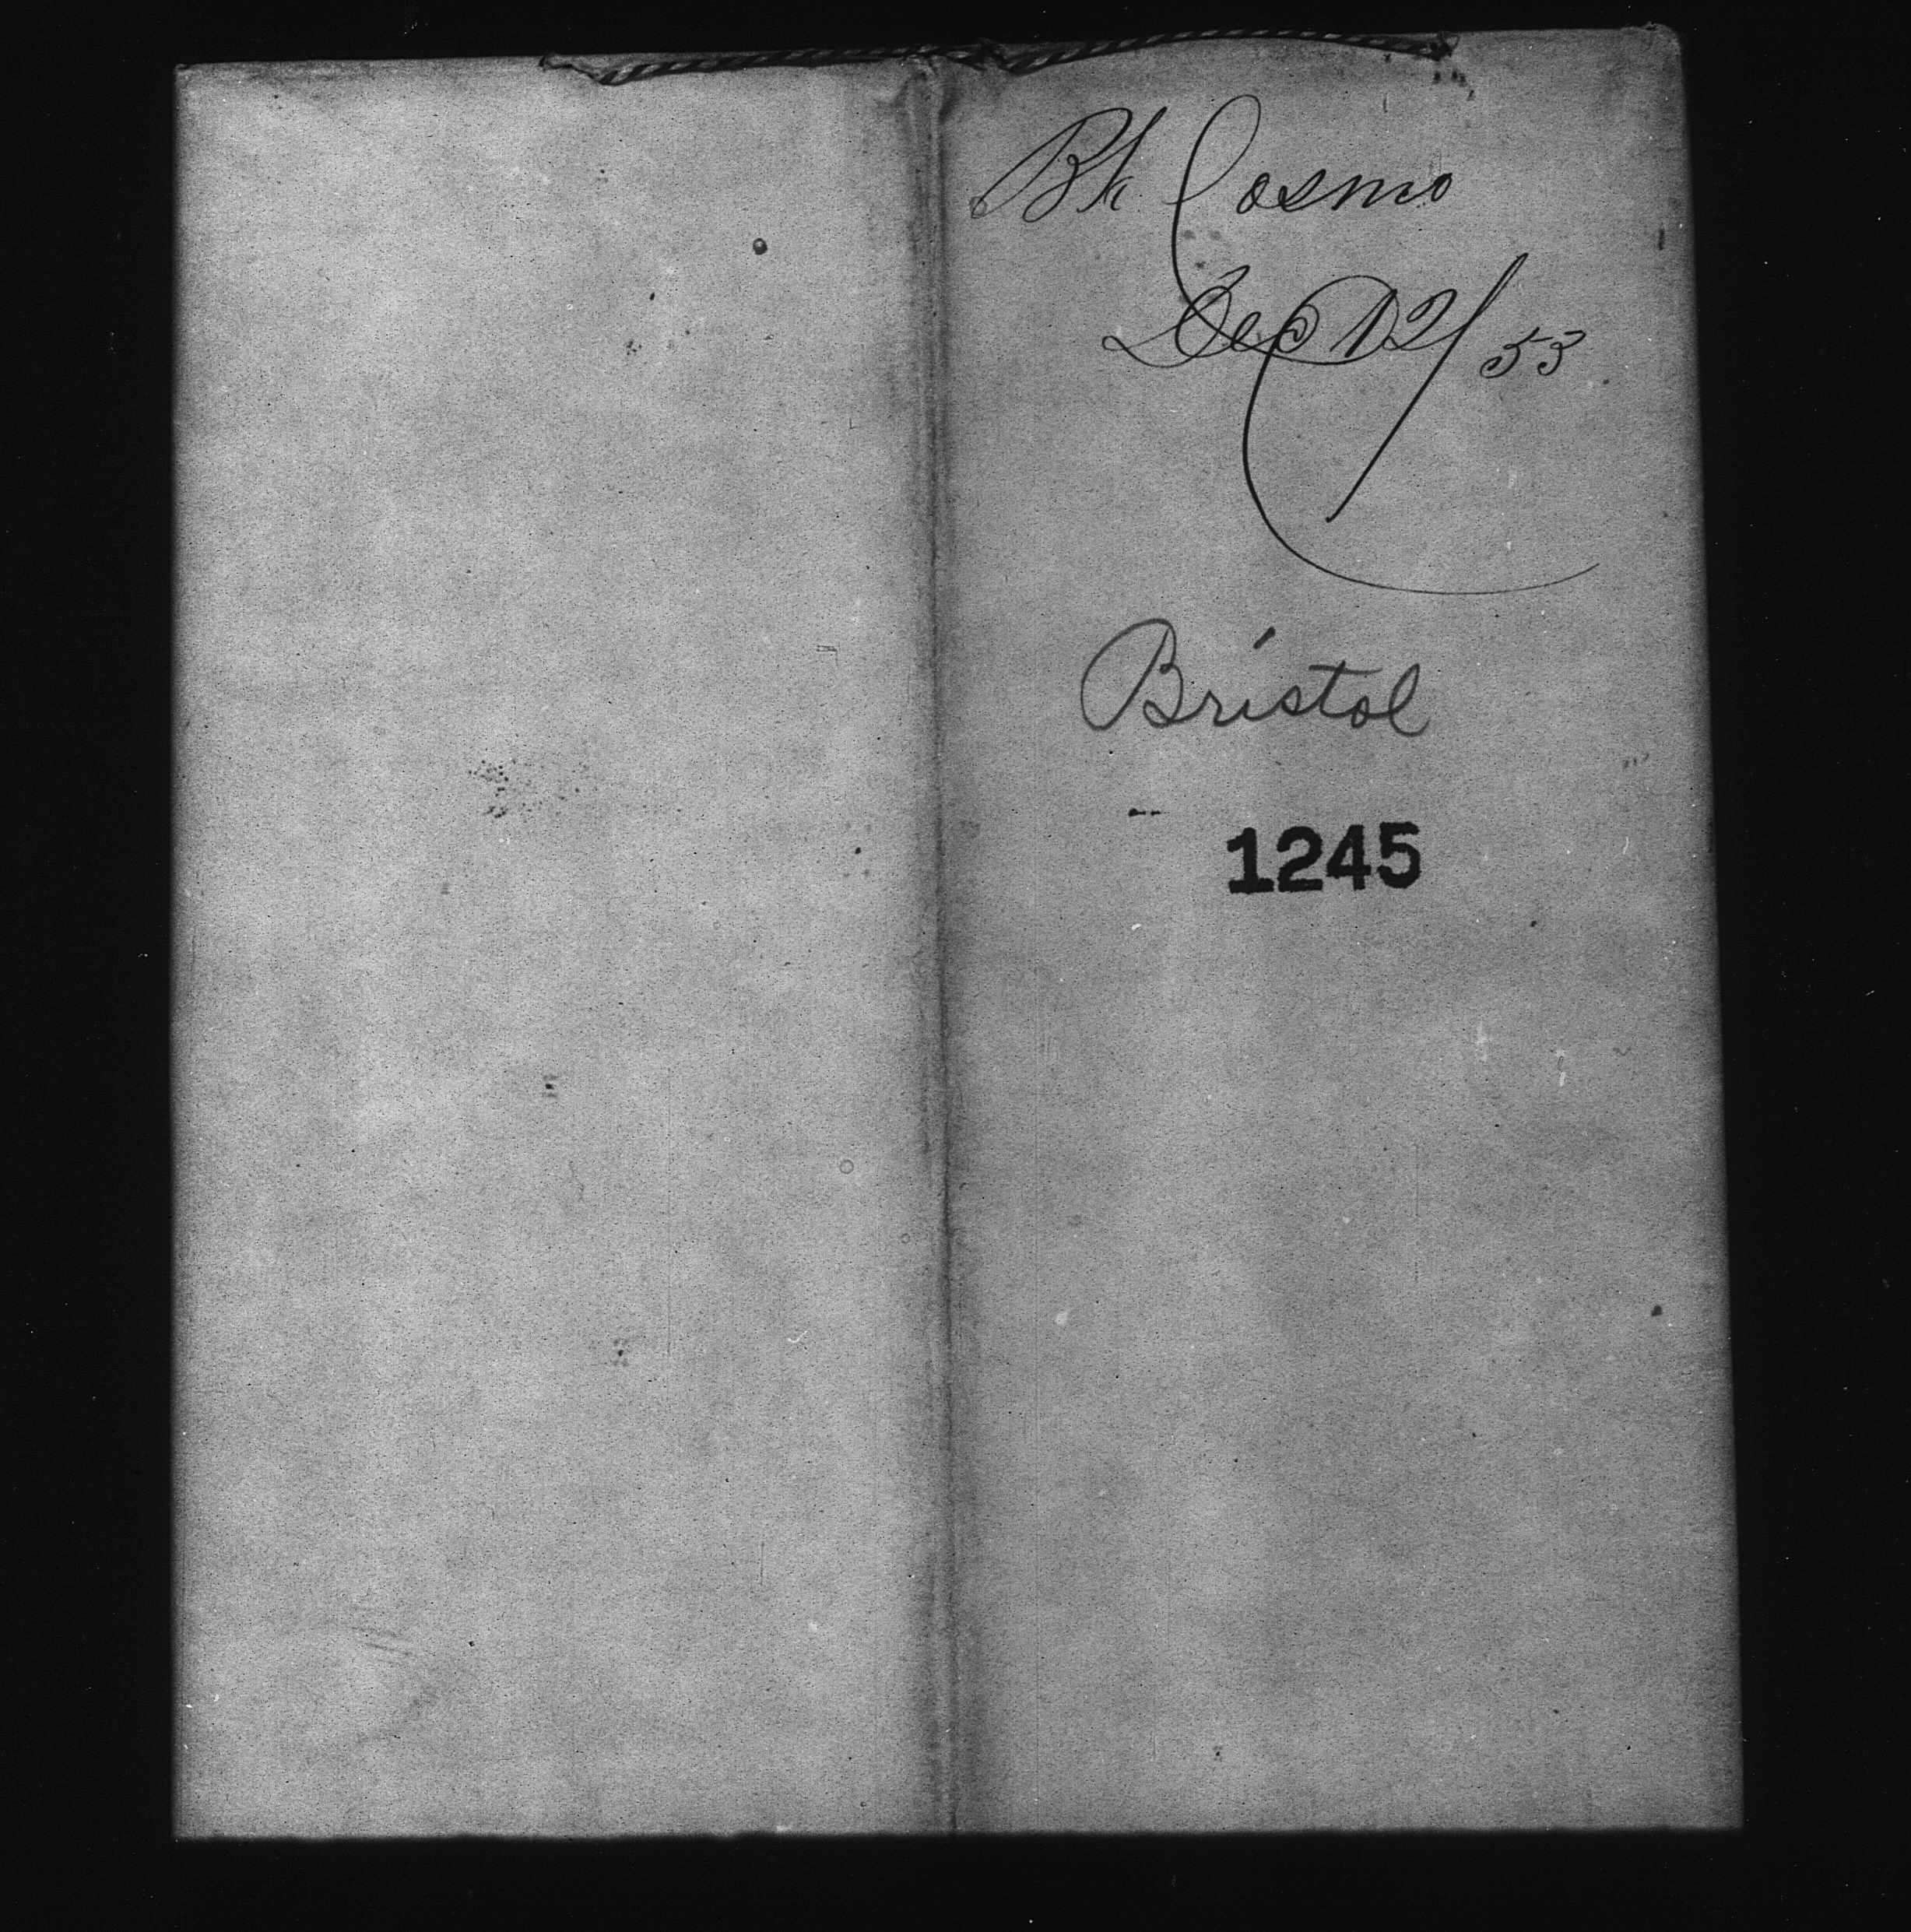 Bk Cosmo
Dec 12/53
Bristol
1245